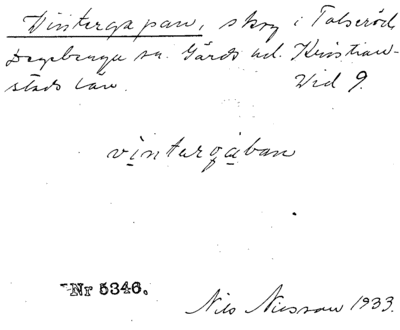 Vintergapan, skog i Tolseröd
Degeberga sn. Gärds hd. Kristian-
stads län. Vid 9.
vintergaban
Nr 5346.
Nils Nilsson 1933.